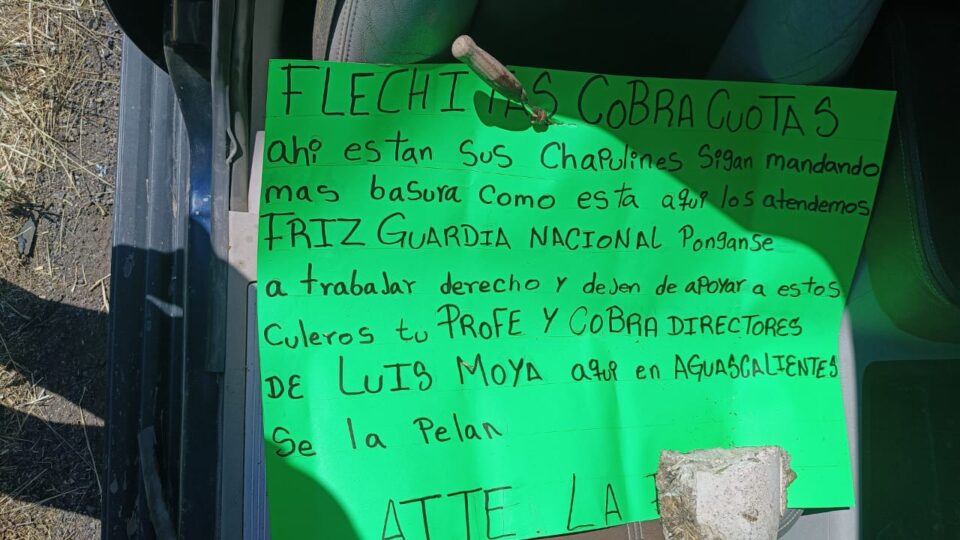 FLECHITAS COBRA CUOTAS
ahi estan sus Chapulines sigan mandando
mas basura como esta aqui los atendemos
FRIZ GUARDIA NACIONAL Ponganse
a trabajar derecho y dejen de apoyar a estos
Culeros tu PROFE Y COBRA DIRECTORES
DE LUIS MOYA aqui en AGUASCALIENTES
Se la Pelan
ATTE. LA